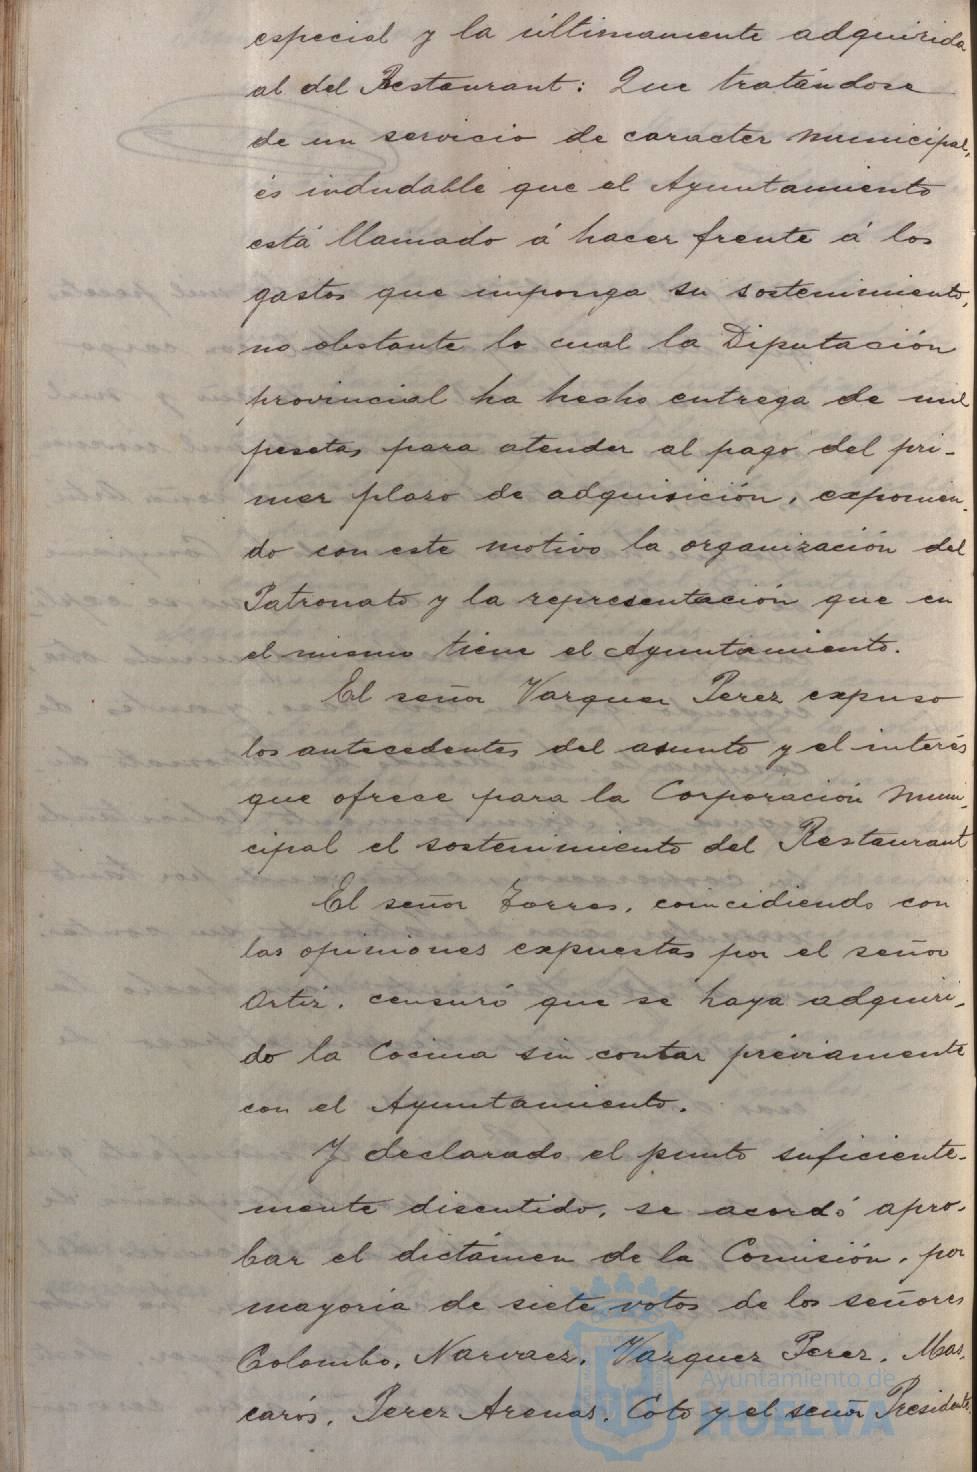 especial y la últimamente adquirida
al del Restaurant: Que tratándose
de un servicio de caracter municipal,
és indudable que el Ayuntamiento
está llamado á hacer frente á los
gastos que imponga su sostenimiento,
no obstante lo cual la Diputación
provincial ha hecho entrega de mil
pesetas para atender al pago del pri-
mer plazo de adquisición, exponien-
do con este motivo la organización del
Patronato y la representación que en
el mismo tiene el Ayuntamiento.
El señor Vazquez Perez expuso
los antecedentes del asunto y el interés
que ofrece para la Corporación muni-
cipal el sostenimiento del Restaurant
El señor Torres, coincidiendo con
las opiniones expuestas por el señor
Ortiz, censuró que se haya adquiri-
do la Cocina sin contar préviamente
con el Ayuntamiento.
Y declarado el punto suficiente-
mente discutido, se acordó apro-
bar el dictámen de la Comisión, por
mayoria de siete votos de los señores
Colombo, Narvaez, Vazquez Perez, Mas-
carós, Perez Arenas, Coto y el señor Presidente,
Ayuntamiento de
HUELVA